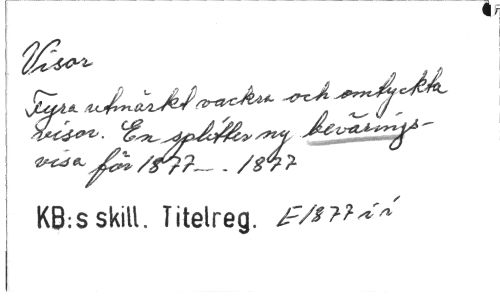 Visor
Fyra utmärkt vackra och omtyckta
visor. En splitter ny bevärings-
visa för 1877. 1877
KB:s skill. Titelreg. E 1877 i i